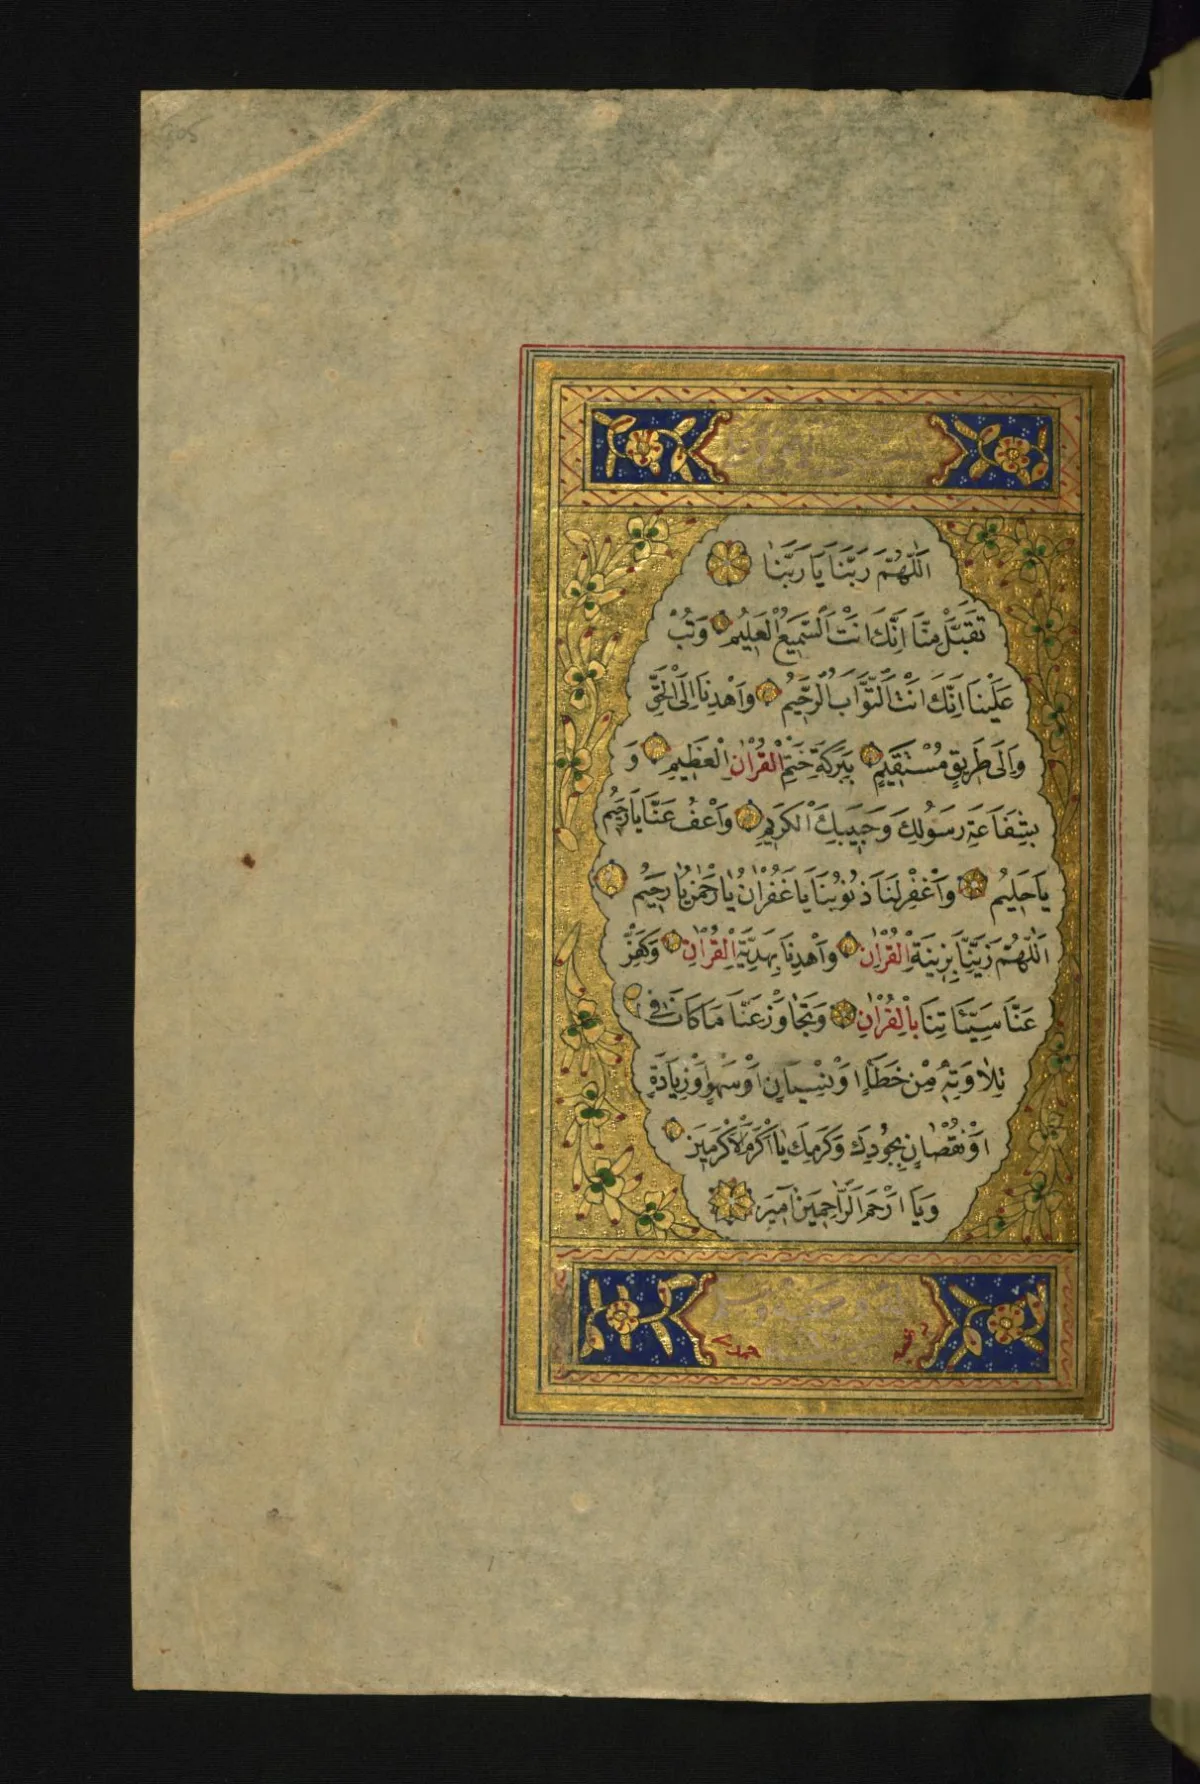 اَللّٰهُمَّ رَبَّنَا يَا رَبَّنَا
تَقَبَّلْ مِنَّا اِنَّكَ اَنْتَ السَّمِيعُ الْعَلِيمُ وَتُبْ
عَلَيْنَا اِنَّكَ اَنْتَ التَّوَّابُ الرَّحِيمُ وَاَهْدِنَا اِلَى الْحَقِّ
وَاِلٰى طَرِيقٍ مُسْتَقِيمٍ بِبَرَكَةِ خَتْمِ الْقُرْاٰنِ الْعَظِيمِ وَ
بِشَفَاعَةِ رَسُولِكَ وَحَبِيبِكَ الْكَرِيمِ وَاَعْفُ عَنَّا يَا رَحِيمُ
يَا حَلِيمُ وَاَغْفِرْ لَنَا ذُنُوبَنَا يَا غُفْرَانُ يَا رَحْمٰنُ يَا رَحِيمُ
اَللّٰهُمَّ زَيِّنَّا بِزِينَةِ الْقُرْاٰنِ وَاَهْدِنَا بِهَدِيَّةِ الْقُرْاٰنِ وَكَفِّرْ
عَنَّا سَيِّئَاتِنَا بِالْقُرْاٰنِ وَتَجَاوَزْ عَنَّا مَا كَانَ فِى
تِلَاوَتِهِ مِنْ خَطَاءٍ اَوْ نِسْيَانٍ اَوْ سَهْوٍ اَوْ زِيَادَةٍ
اَوْ نُقْصَانٍ بِجُودِكَ وَكَرَمِكَ يَا اَكْرَمَ الْاَكْرَمِينَ
وَيَا اَرْحَمَ الرَّاحِمِينَ اٰمِينَ